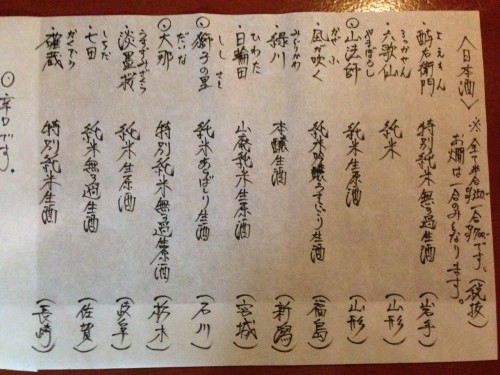 〈日本酒〉
※全て半合¥350-です。(税抜)
一合¥700-
お燗は一合のみとなります。
よえもん
・酉与右衛門 特別純米無ろ過生原酒 (岩手)
ろっかせん
・六歌仙 純米 (山形)
やまほうし
○山法師 純米生原酒 (山形)
かぜ ふ
・風が吹く 純米吟醸うすにごり生酒 (福島)
みどりかわ
・緑川 本醸生酒 (新潟)
ひわた
・日輪田 山廃純米生原酒 (宮城)
しし さと
○獅子の里 純米あらばしり生酒 (石川)
だいな
○大那 特別純米無ろ過生原酒 (栃木)
うすずみざくら
・淡墨桜 純米生原酒 (岐阜)
しちだ
・七田 純米無ろ過生酒 (佐賀)
・確蔵 特別純米生酒 (長崎)
○辛口です。